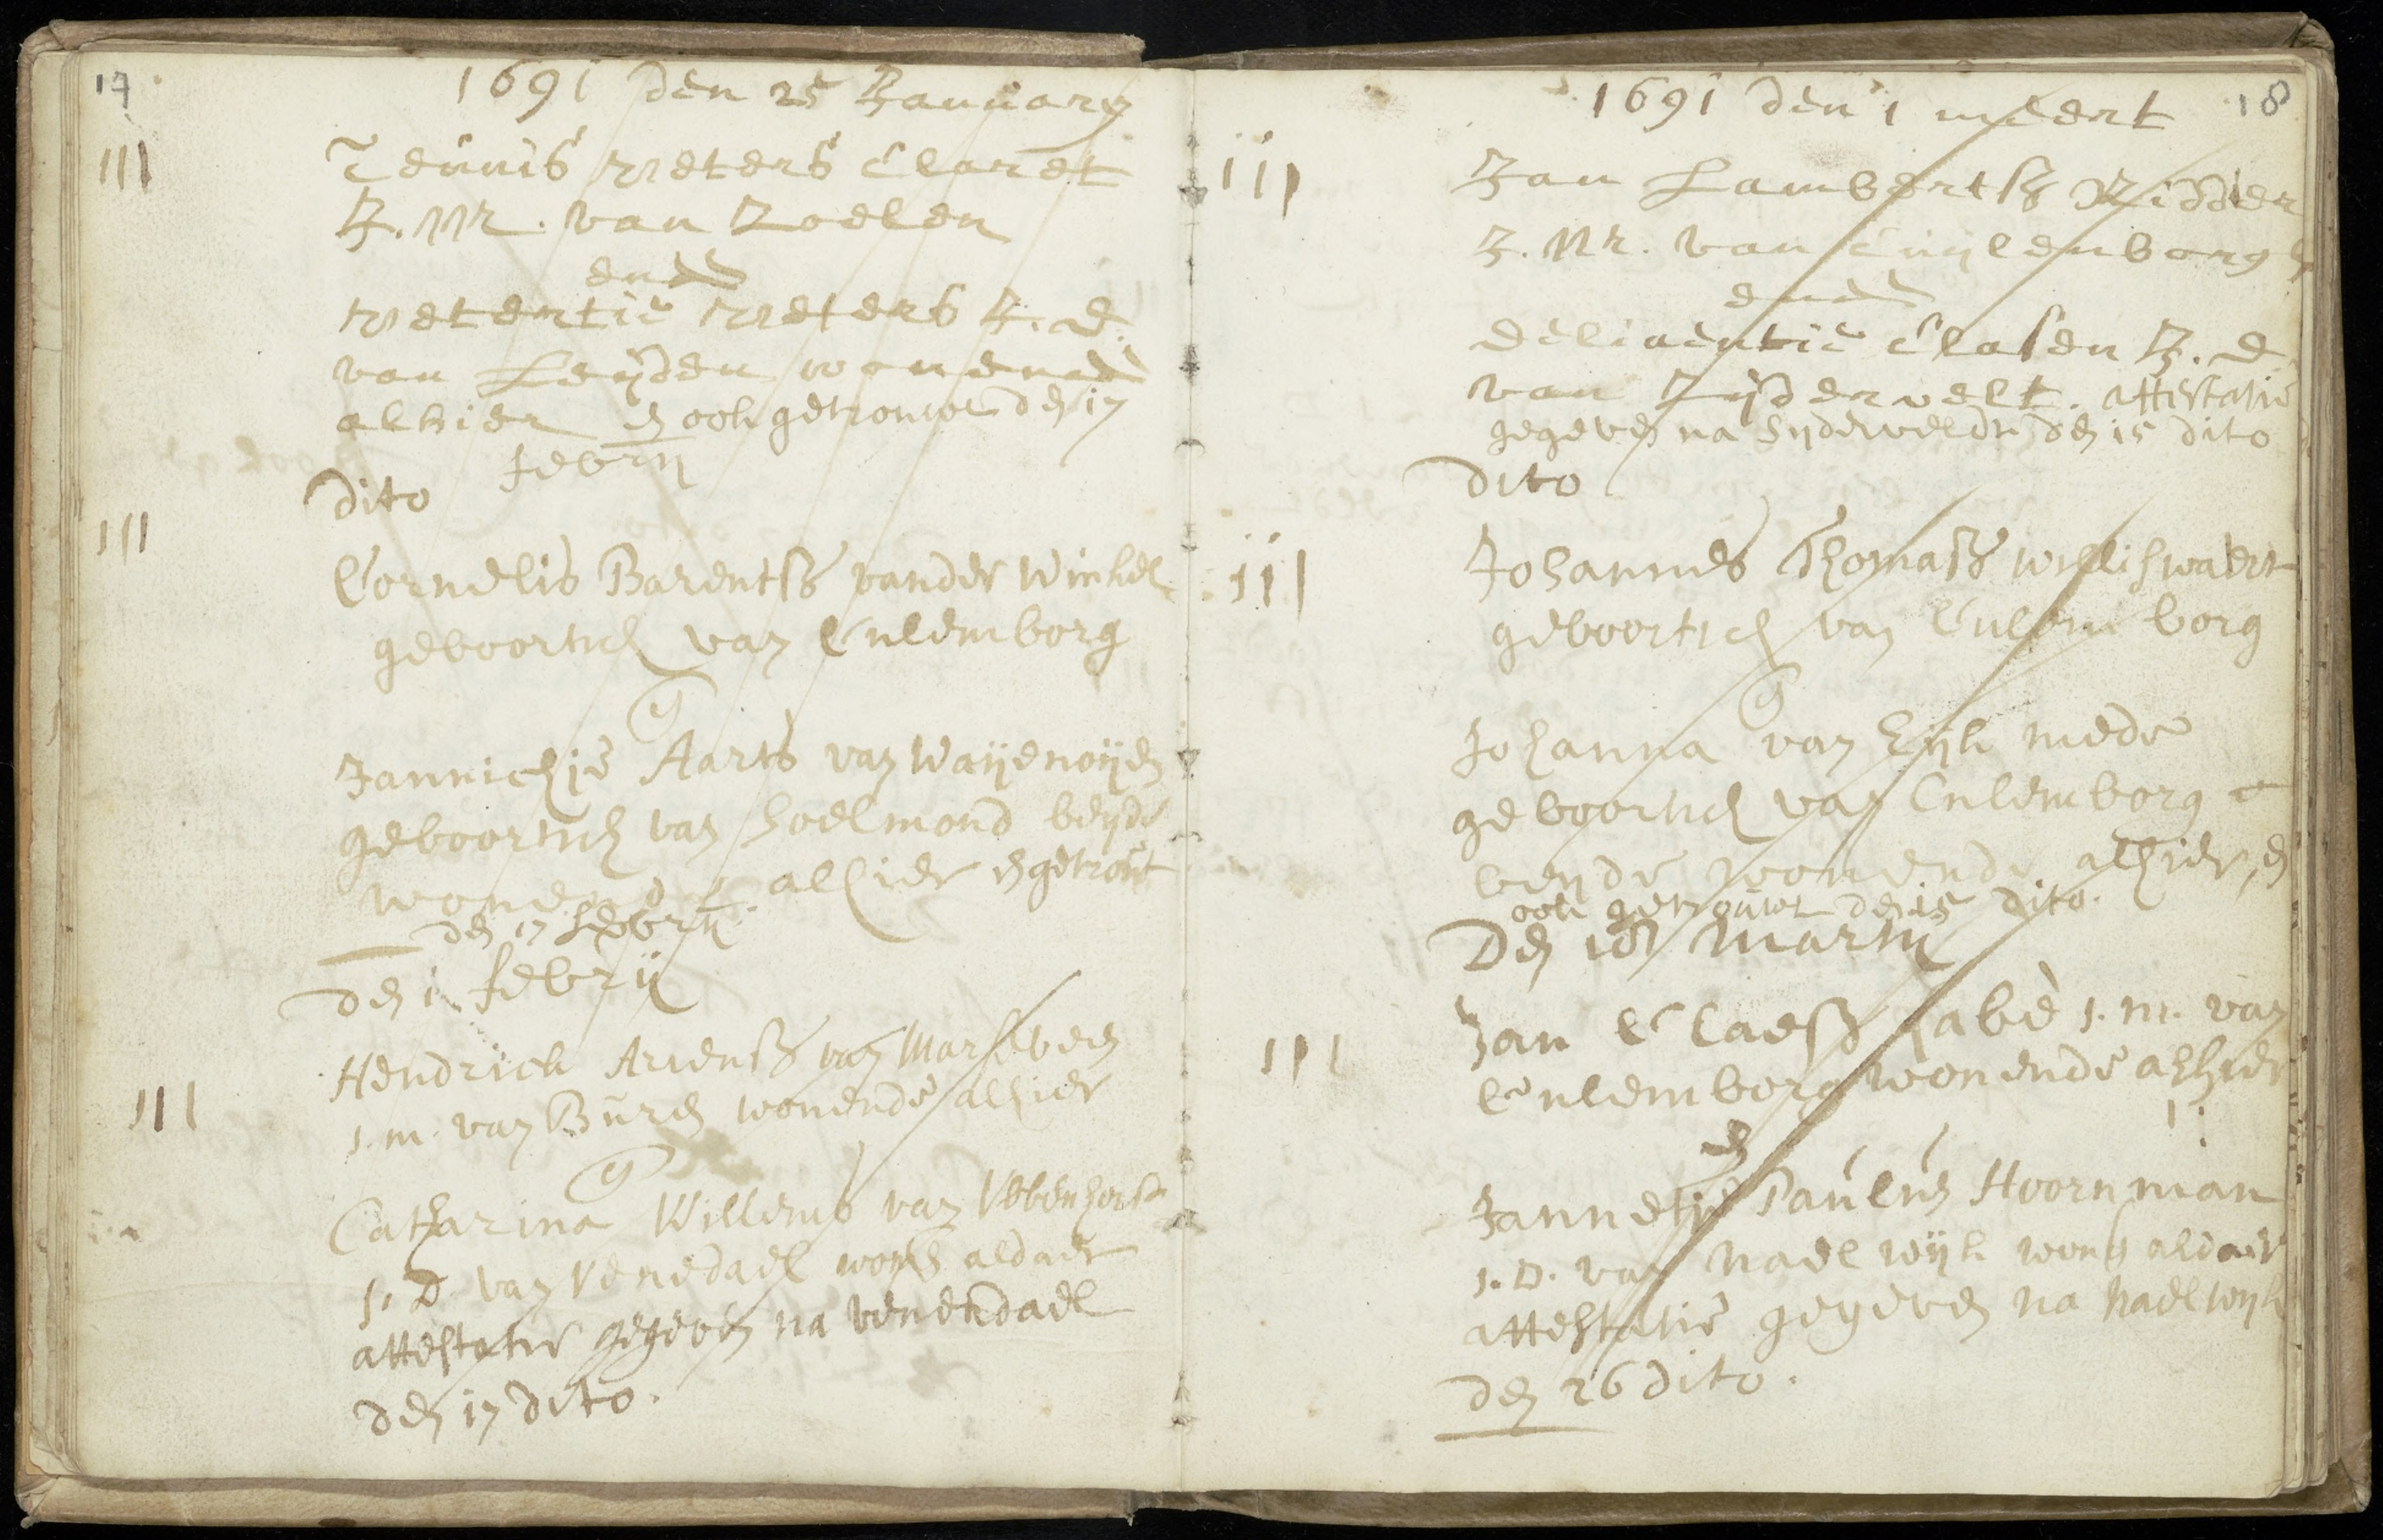 17
1691 den 25 January
111
Teunis Peters Claret
J. M. van Zoelen
ende
Petertie Peters J. D.
van Leyden wonende
alhier en ook getrouwt den 17
febry
dito
111
Cornelis Barentss vander Winkel
geboortich van Culemborg
en
Jannichie Aarts van Waijenoijen
geboortich van Soelmond beijde
wonende alhier en getrout
den 17 febry
den 1 febrij
Hendrick Arienss van
111
j. m. van Buren wonende alhier
en
Catharina Willems van Ubbenhorst
j. D. van Venedael wonende aldaer
attestatie gegeven na venendael
den 17 dito.
18
1691 den 1 meert
111
Jan Lambertss Ridder
J. M. van Cuylenborgh
ende
Clasen J. D.
van Zijdervelt. attestatie
gegeven na Sijderveldt den 15 dito
dito
111
Johannes Thomass
geboortich van Culemborg
en
Johanna van Eijk mede
geboortich van Culemborg
beyde wonende alhier, en
ook getrouwt den 15 dito.
Den 18 Martij
Jan Claess j. m. van
111
Culemborg wonende alhier
en
Jannetje Paulus Hoornman
j. D. van Naelwijk wonende aldaer
attestatie gegeven na Naelwijk
den 26 dito.